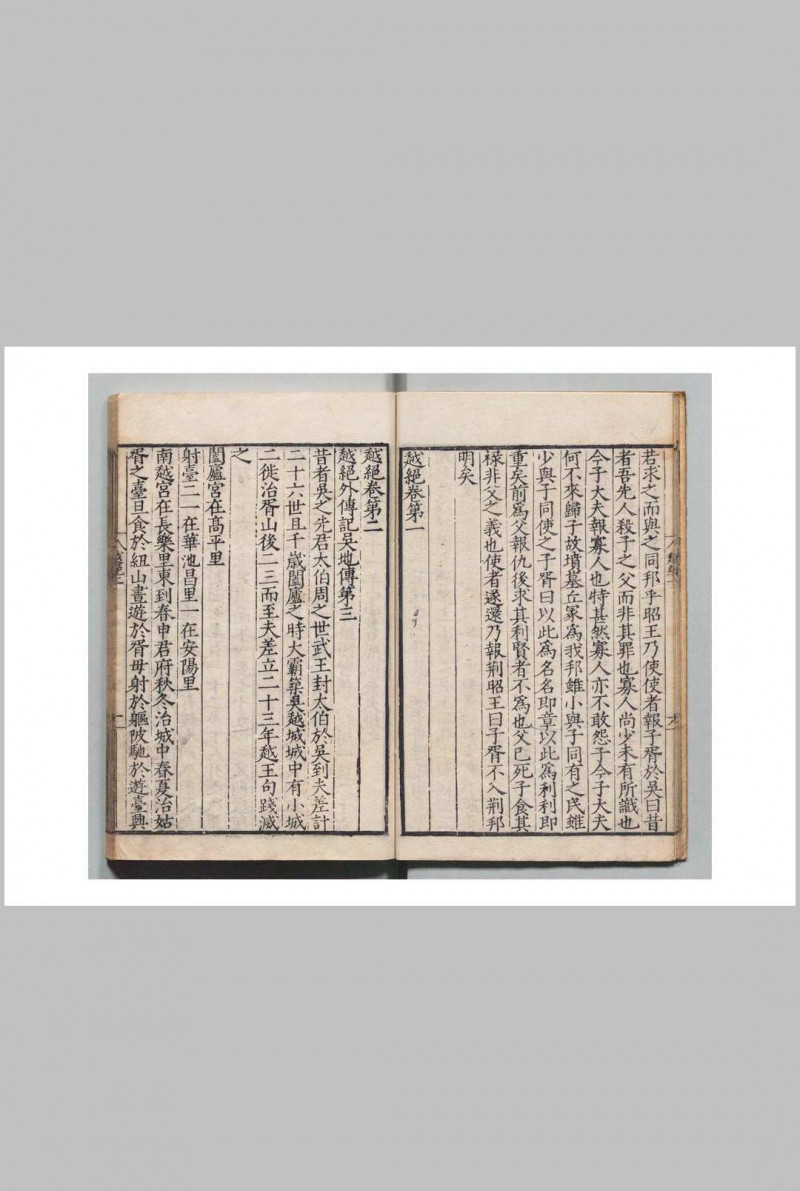 若求之而與之同邦乎昭王乃使使者報子胥於吳曰昔
者吾先人殺子之父而非其罪也寡人尚少未有所識也
今子大夫報寡人也特甚然寡人亦不敢怨子今子大夫
何不來歸子故墳墓丘冢爲我邦雖小與子同有之民雖
少與子同使之子胥曰以此爲名名即章以此爲利利即
重矣前爲父報仇後求其利賢者不爲也父已死子食其
祿非父之義也使者遂還乃報荆昭王曰子胥不入荆邦
明矣
越絕卷第一
越絕卷第二
越絕外傳記吳地傳第三
昔者吳之先君太伯周之世武王封太伯於吳到夫差計
二十六世且千歲闔廬之時大霸築吳越城城中有小城
二徙治胥山後二三而至夫差立二十三年越王句踐滅
之
闔廬宮在高平里
射臺二一在華池昌里一在安陽里
南越宮在長樂里東到春申君府秋冬治城中春夏治姑
胥之臺旦食於紐山晝遊於胥母射於軀陂馳於遊臺興